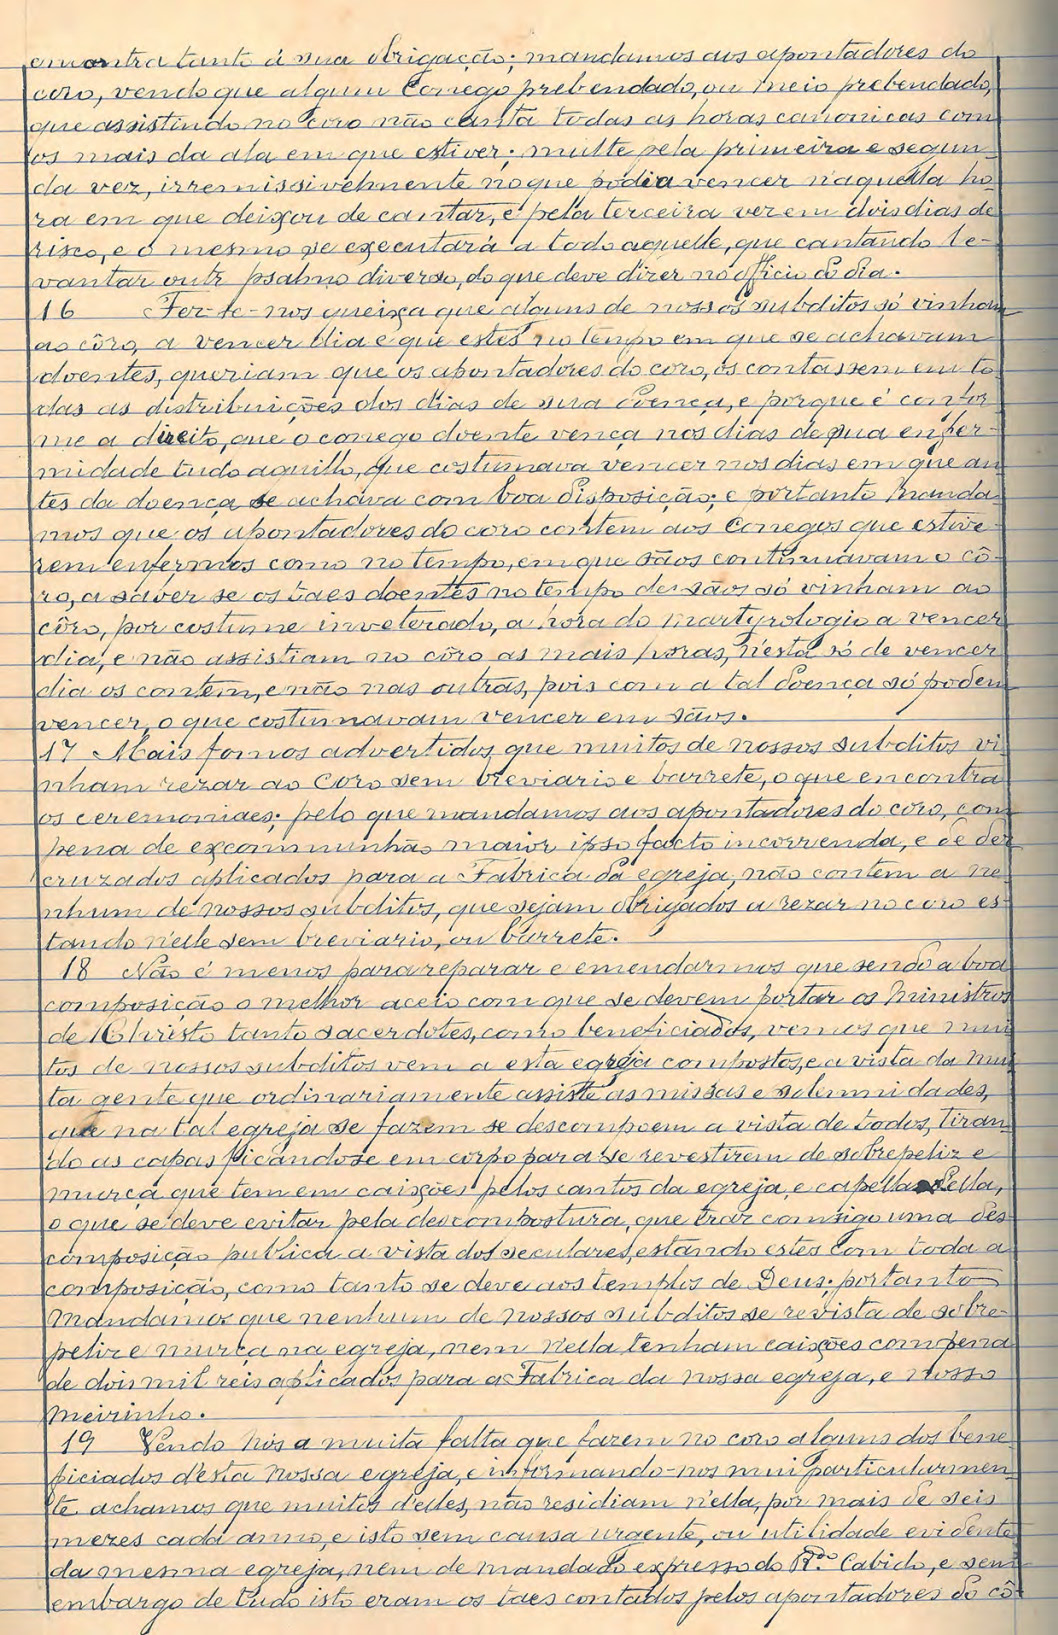 encontra tanto á sua obrigação; mandamos aos apontadores do
coro, vendo que algum Conego prebendado, ou meio prebendado,
que assistindo no coro não canta todas as horas canonicas com
os mais da ala em que estiver; multe pela primeira e segun-
da vez, irremissivelmente no que podia vencer n'aquella ho-
ra em que deixou de cantar, e pela terceira vez em dois dias de
risco, e o mesmo se executará a todo aquelle, que cantando le-
vantar outr psalmo diverso, do que deve dizer no officio do dia.
16 Fez-se-nos queixa que alguns de nossos subditos só vinham
ao côro, a vencer dia e que estes no tempo em que se achavam
doentes, queriam que os apontadores do coro, os contassem em to-
das as distribuições dos dias de sua doença, e porque é confor-
me a direito, que o conego doente vença nos dias de sua enfer-
midade tudo aquillo, que costumava vencer nos dias em que an-
tes da doença se achava com boa disposição; e portanto manda-
mos que os apontadores do coro contem aos Conegos que estive-
rem enfermos como no tempo, em que sãos continuavam o cô-
ro, a saver se os taes doentes no tempo de sãos só vinham ao
côro, por costume inveterado, a hora do martyrologio a vencer
dia, e não assistiam no côro as mais horas, n'esta só de vencer
dia os contem, e não nas outras, pois com a tal doença só podem
vencer, o que costumavam vencer em sãos.
17 Mais fomos advertidos, que muitos de nossos subditos vi-
nham rezar ao coro sem breviario e barrete, o que encontra
os ceremoniaes; pelo que mandamos aos apontadores do coro, com
pena de excommunhão maior ipso facto incorrenda, e de dez
cruzados aplicados para a Fabrica da egreja, não contem a ne-
nhum de nossos subditos, que sejam obrigados a rezar no coro es-
tando n'elle sem breviario, ou barrete.
18 Não é menos para reparar e emendarmos que sendo a boa
composição o melhor aceio com que se devem portar os Ministros
de Christo tanto sacerdotes, como beneficiados, vemos que mui-
tos de nossos subditos vem a esta egreja compostos, e a vista da mui-
ta gente que ordinariamente assiste as missas e solemnidades,
que na tal egreja se fazem se descompoem a vista de todos, tiran-
do as capas ficando se em corpo para se revestirem de sobrepeliz e
murça que tem em caixões pelos cantos da egreja, e capellas d'ella,
o que se deve evitar pela descompostura, que traz comsigo uma des-
composição publica a vista dos seculares, estando estes com toda a
composição, como tanto se deve aos templos de Deus; portanto
Mandamos que nenhum de nossos subditos se revista de sobre-
peliz e murça na egreja, nem n'ella tenham caixões com pena
de dois mil reis aplicados para a Fabrica da nossa egreja, e nosso
Meirinho.
19 Vendo Nós a muita falta que fazem no coro alguns dos bene-
ficiados d'esta nossa egreja, e informando-nos mui particularmen-
te achamos que muitos d'elles, não residiam n'ella, por mais de seis
mezes cada anno, e isto sem causa urgente, ou utilidade evidente
da mesma egreja, nem de mandado expresso do R.do Cabido, e sem
embargo de tudo isto eram os taes contados pelos apontadores do cô-